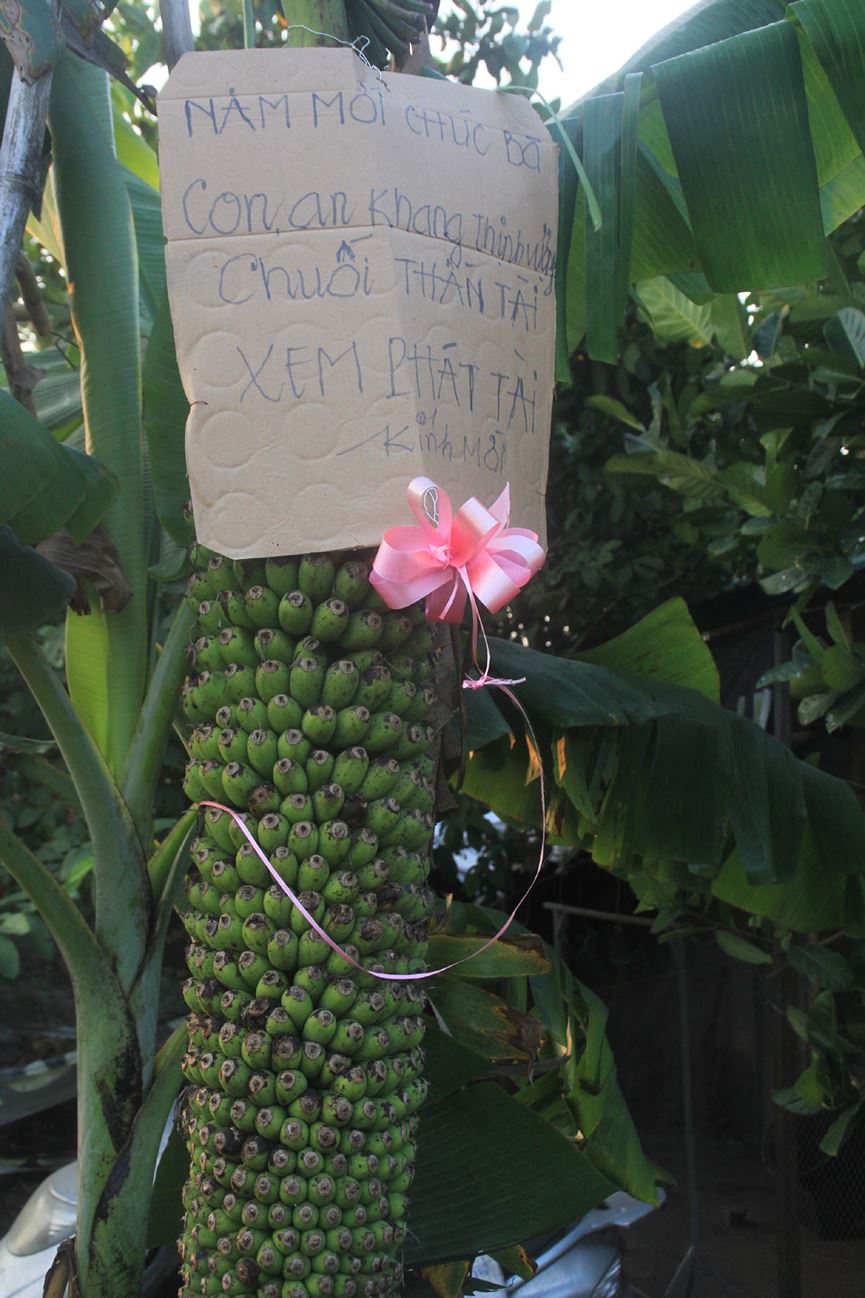 NĂM MỚI CHÚC BÀ
Con, an Khang Thịnh vượng
Chuối THẦN TÀI
XEM PHÁT TÀI
Kính MỜI